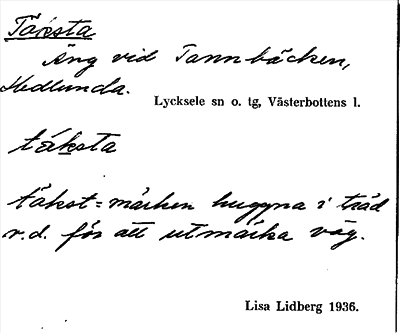 Täksta
Äng vid Tannbäcken,
Hedlunda.
Lycksele sn o. tg, Västerbottens l.
täksta
täkst = märken huggna i träd
o.d. för att utmärka väg.
Lisa Lidberg 1936.